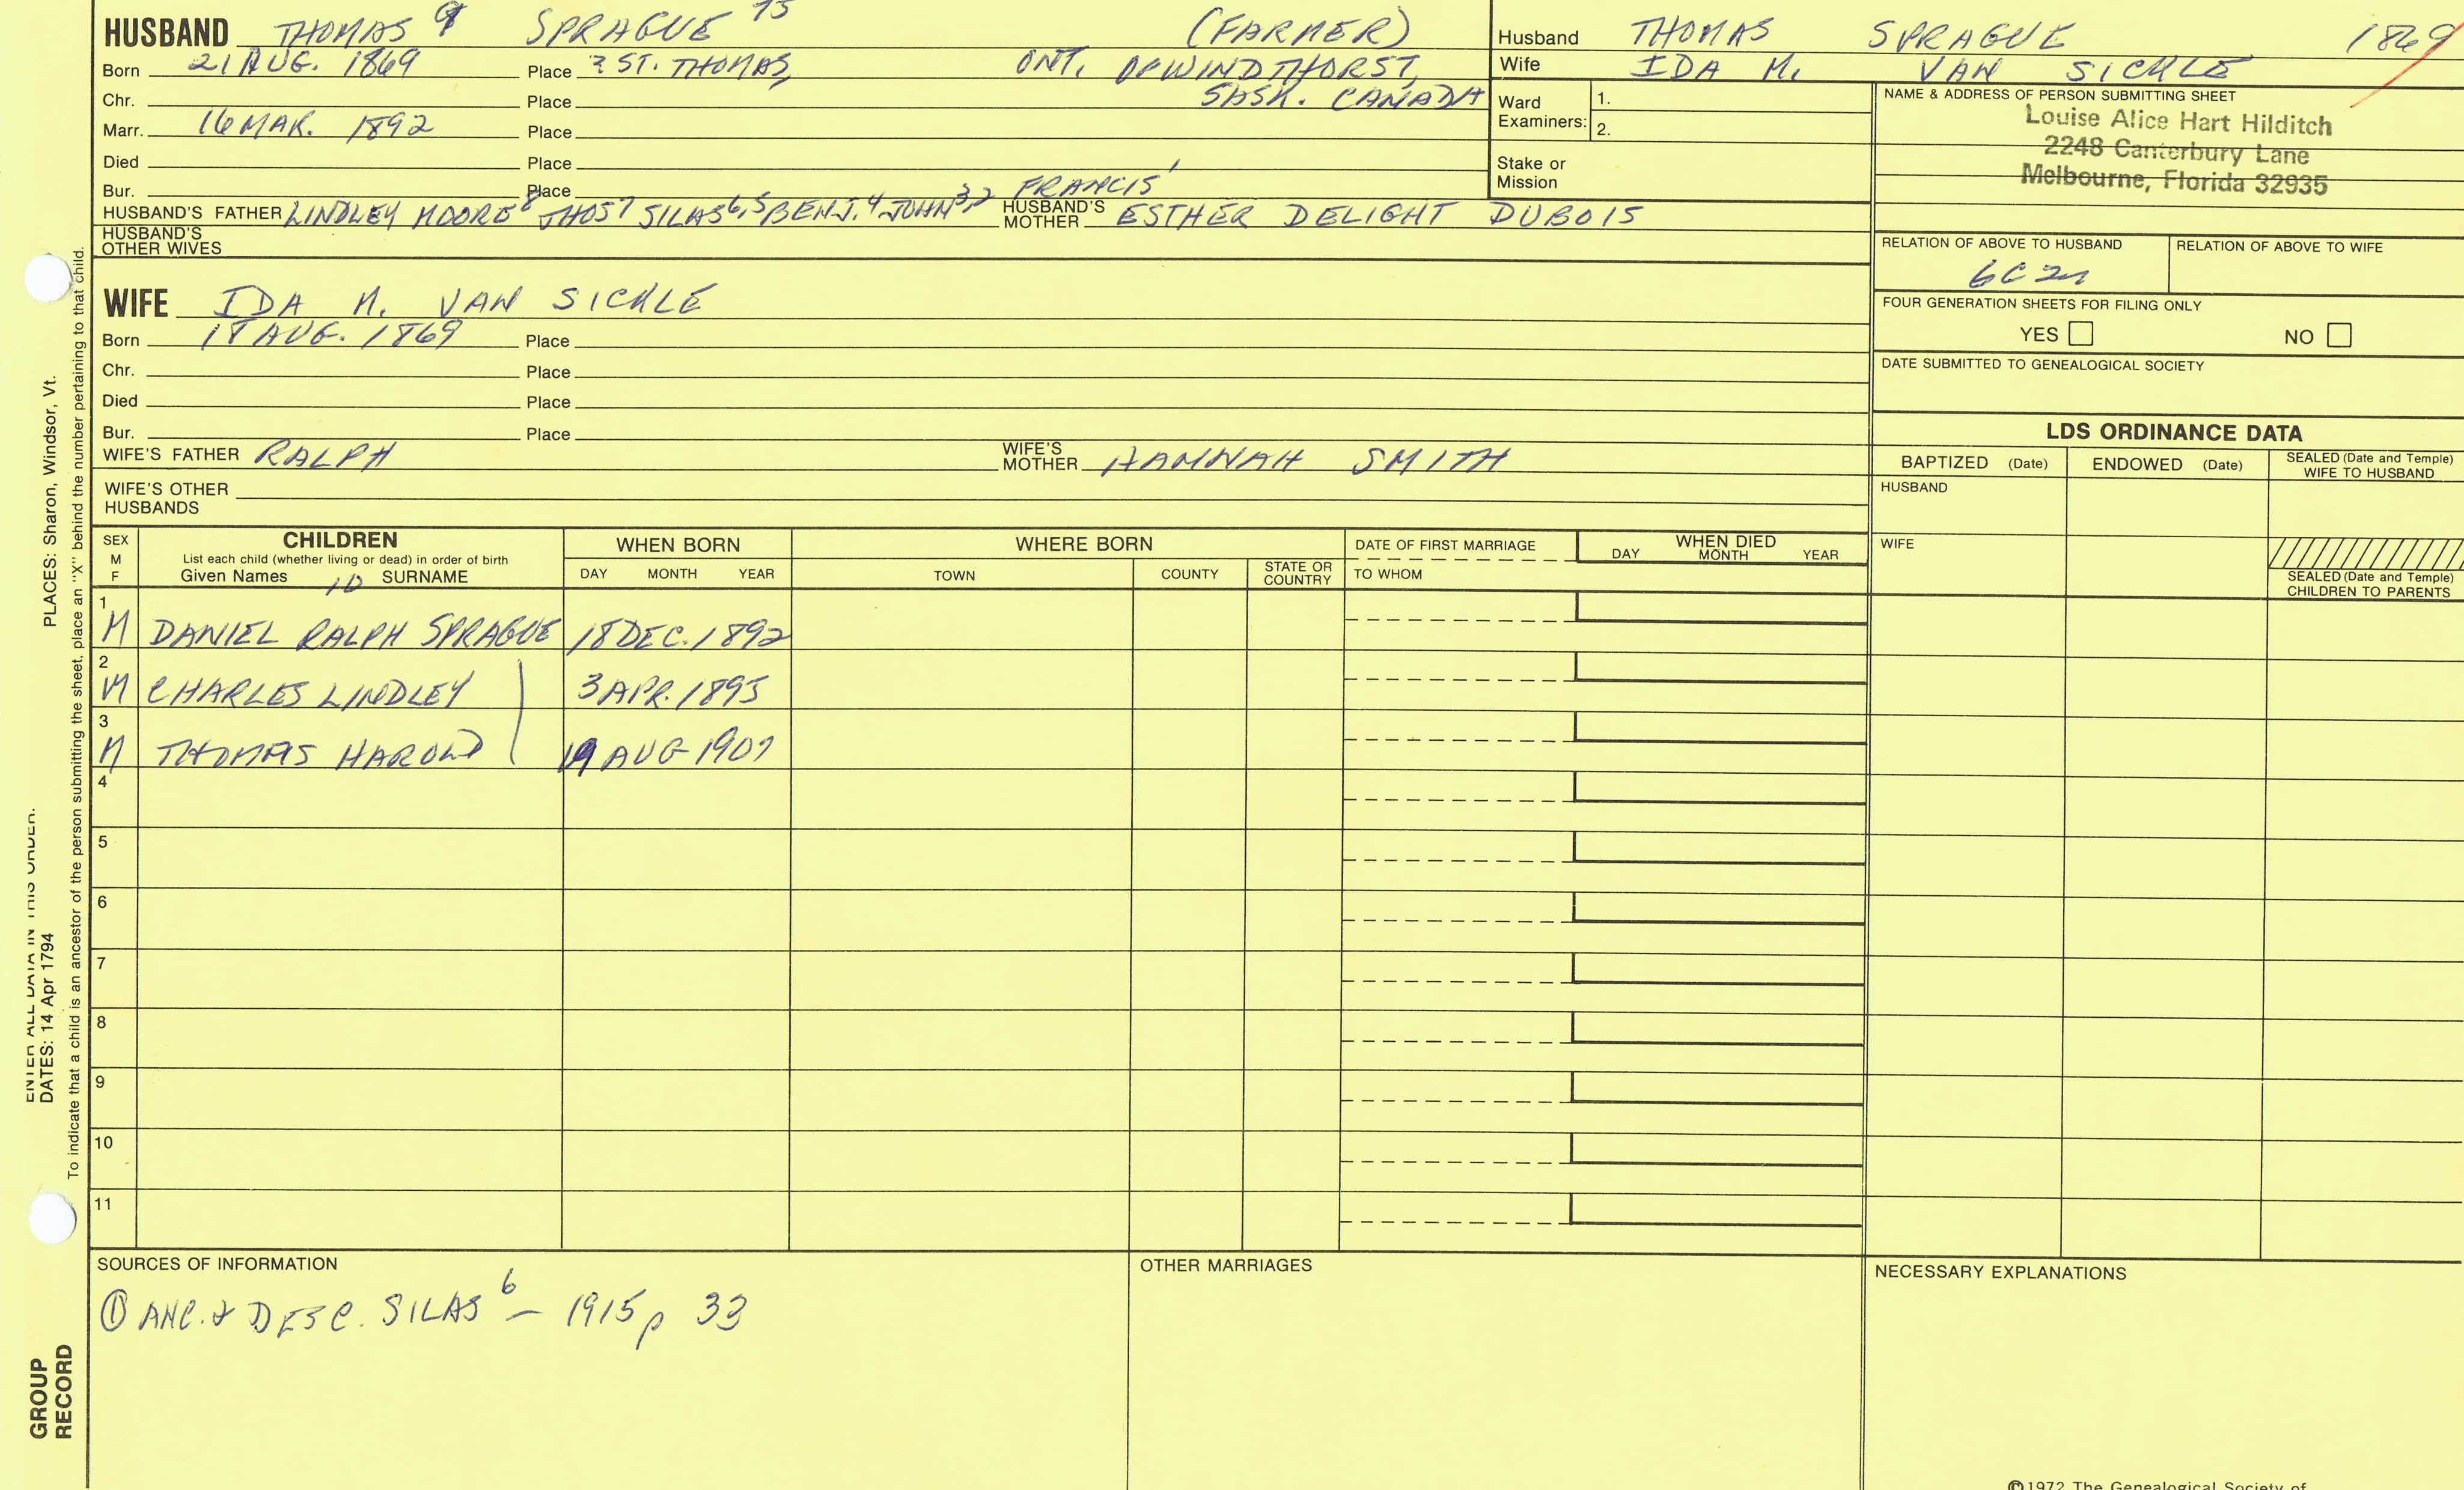 HUSBAND THOMAS 9 SPRAGUE 75 (FARMER)
Born 21 AUG. 1869 Place ? ST. THOMAS, ONT. OF WINDTHORST,
Chr. Place SASK. CANADA
Marr. 16 MAR. 1892 Place
Died Place
Bur. Place
HUSBAND'S FATHER LINDLEY MOORE8 THOS7 SILAS6,5 BENJ.4 JOHN3,2 FRANCIS1 HUSBAND'S MOTHER ESTHER DELIGHT DUBOIS
HUSBAND'S OTHER WIVES
Husband THOMAS SPRAGUE 1869
Wife IDA M. VAN SICKLE
Ward Examiners: 1.
2.
Stake or Mission
NAME & ADDRESS OF PERSON SUBMITTING SHEET
Louise Alice Hart Hilditch
2248 Canterbury Lane
Melbourne, Florida 32935
RELATION OF ABOVE TO HUSBAND RELATION OF ABOVE TO WIFE
6C2r
FOUR GENERATION SHEETS FOR FILING ONLY
YES NO
DATE SUBMITTED TO GENEALOGICAL SOCIETY
WIFE IDA M. VAN SICKLE
Born 18 AUG. 1869 Place
Chr. Place
Died Place
Bur. Place
WIFE'S FATHER RALPH WIFE'S MOTHER HANNAH SMITH
WIFE'S OTHER HUSBANDS
LDS ORDINANCE DATA
BAPTIZED (Date) ENDOWED (Date) SEALED (Date and Temple) WIFE TO HUSBAND
HUSBAND
WIFE
SEALED (Date and Temple) CHILDREN TO PARENTS
SEX M F CHILDREN WHEN BORN WHERE BORN DATE OF FIRST MARRIAGE WHEN DIED
List each child (whether living or dead) in order of birth
Given Names 10 SURNAME DAY MONTH YEAR TOWN COUNTY STATE OR COUNTRY TO WHOM DAY MONTH YEAR
1 M DANIEL RALPH SPRAGUE 18 DEC. 1892
2 M CHARLES LINDLEY 3 APR. 1895
3 M THOMAS HAROLD 19 AUG 1907
4
5
6
7
8
9
10
11
SOURCES OF INFORMATION
① ANC. & DESC. SILAS6 - 1915 p 33
OTHER MARRIAGES
NECESSARY EXPLANATIONS
©1972 The Genealogical Society of
ENTER ALL DATA IN THIS ORDER:
PLACES: Sharon, Windsor, Vt.
DATES: 14 Apr 1794
To indicate that a child is an ancestor of the person submitting the sheet, place an "X" behind the number pertaining to that child.
GROUP
RECORD